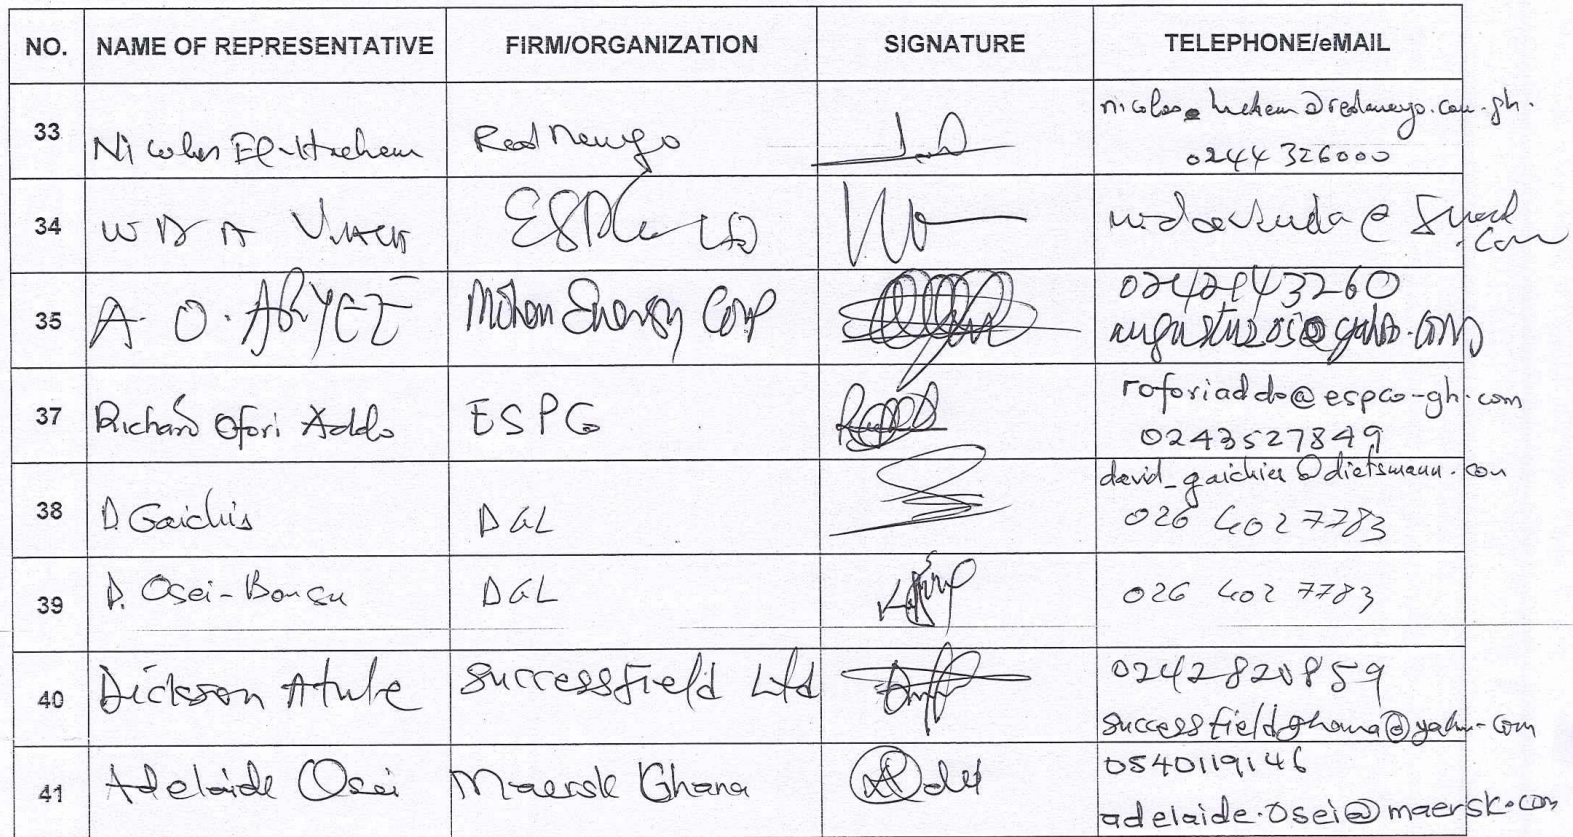 NO. NAME OF REPRESENTATIVE FIRM/ORGANIZATION SIGNATURE TELEPHONE/eMAIL
33 Nicolas El-Hachem Red Mango
0244 326000
34 W D A
35 A. O. ARYEE Energy Corp
37 Richard Ofori Addo ESPG roforiaddo@espco-gh.com
0243527849
38 D. Gaichis DGL david_gaichies@dietsmann.com
026 402 7783
39 D. Osei-Bonsu DGL 026 402 7783
40 Dickson Atule Successfield Ltd 0242820859
successfieldghana@yahoo.com
41 Adelaide Osei Maersk Ghana 0540119146
adelaide.osei@maersk.com